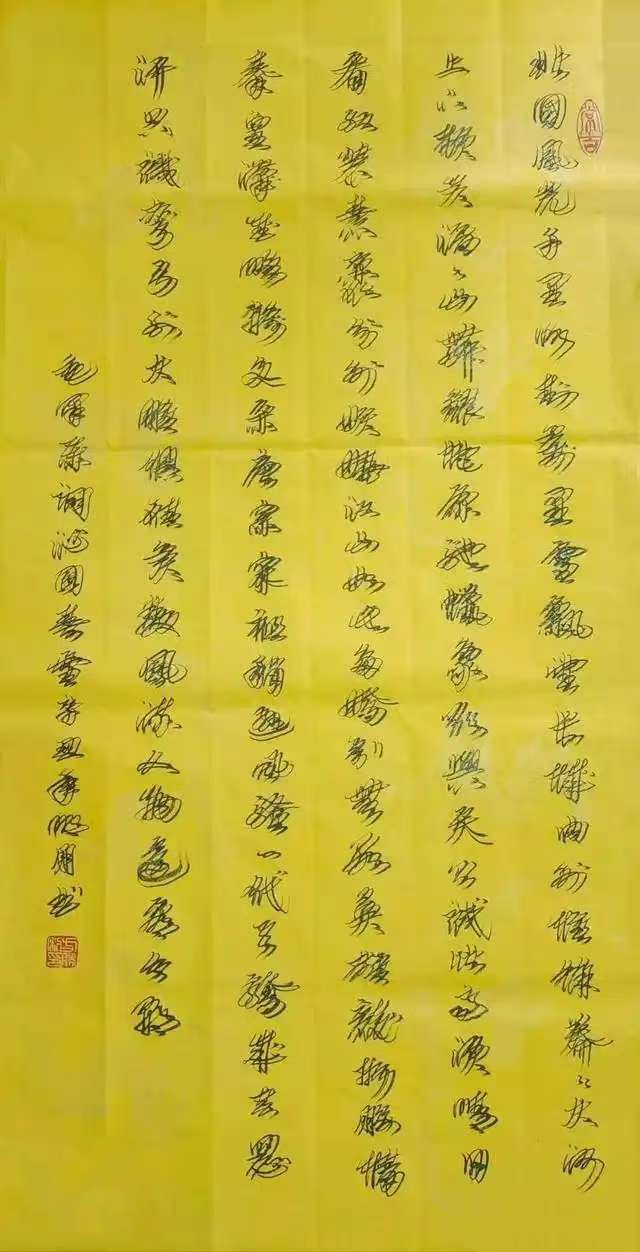 北國風光千里冰封萬里雪飄望長城內外惟餘莽々大河
上下頓失滔々山舞銀蛇原馳蠟象欲與天公試比高須晴日
看紅裝素裹分外妖嬈江山如此多嬌引無數英雄競折腰惜
秦皇漢武略輸文采唐宗宋祖稍遜風騷一代天驕成吉思
汗只識彎弓射大雕俱往矣數風流人物還看今朝
毛澤東詞沁園春雪辛丑年書